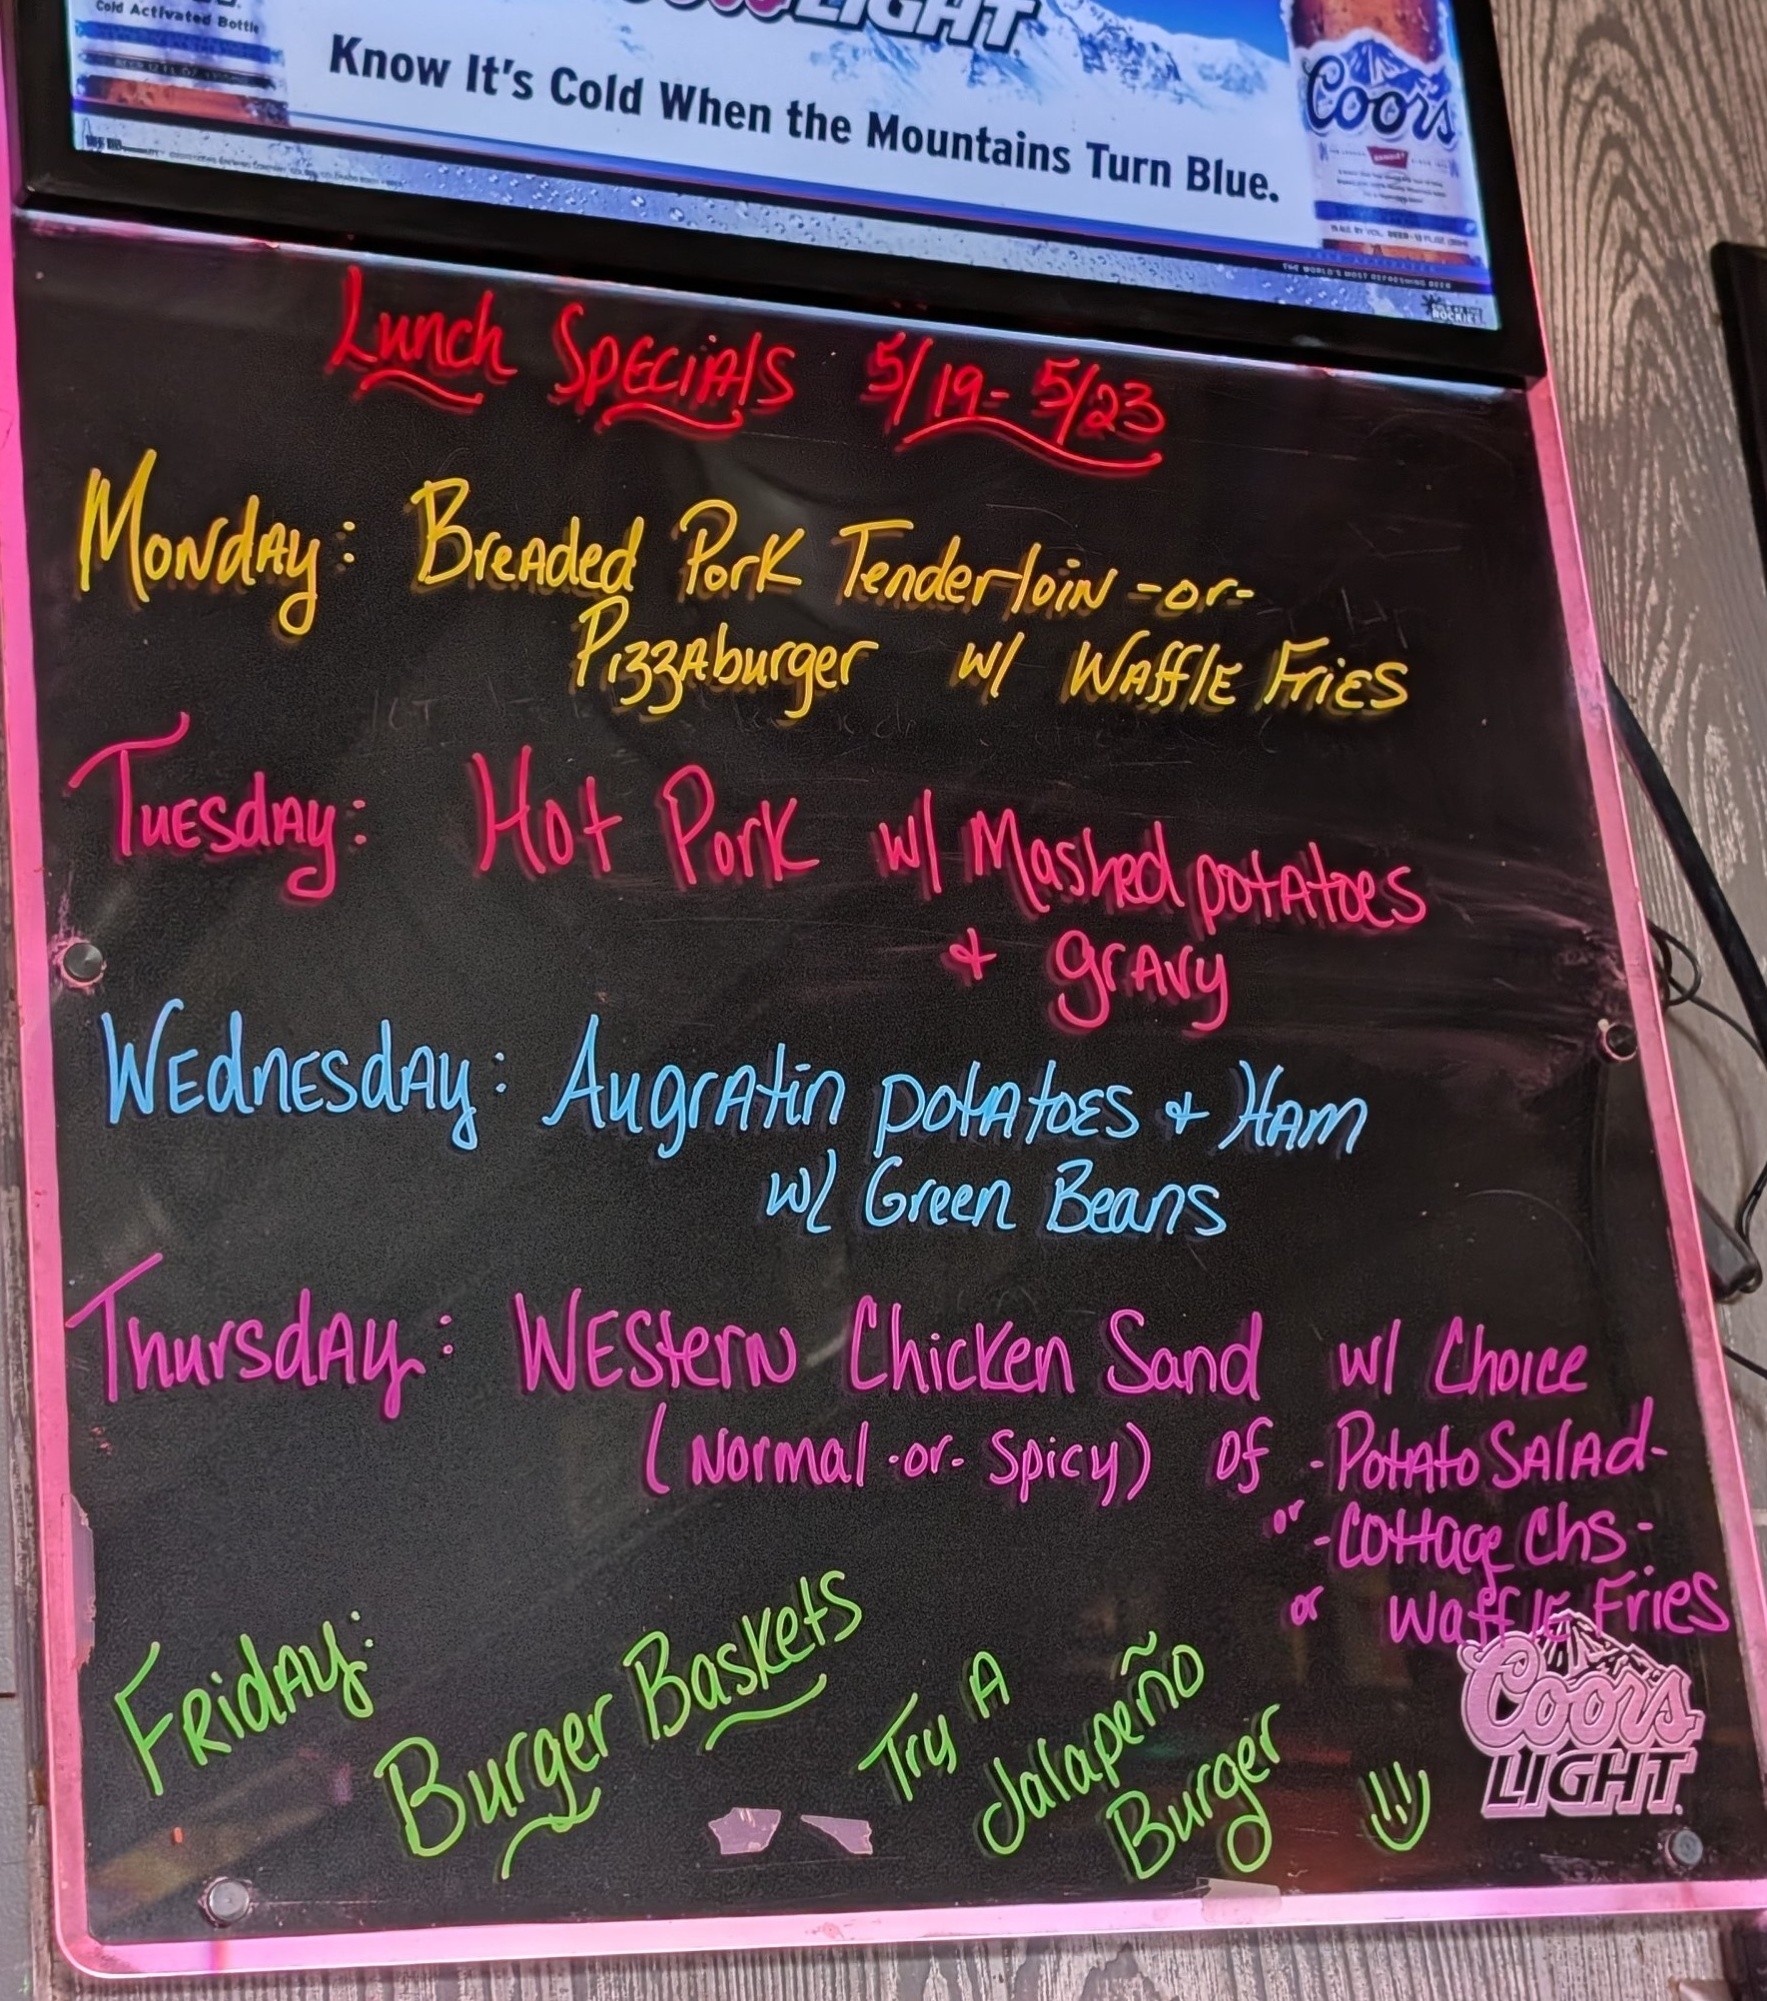 Cold Activated Bottle
LIGHT
Know It's Cold When the Mountains Turn Blue.
Coors
BANQUET
THE WORLD'S MOST REFRESHING BEER
ROCKIES
Lunch Specials 5/19-5/23
Monday: Breaded Pork Tenderloin -or-
Pizzaburger w/ Waffle Fries
Tuesday: Hot Pork w/ Mashed potatoes
+ gravy
Wednesday: Augratin potatoes + Ham
w/ Green Beans
Thursday: Western Chicken Sand w/ Choice
(Normal -or- Spicy) of -Potato Salad-
or -Cottage Chs-
or Waffle Fries
Friday: Burger Baskets
Try A
Jalapeño
Burger
Coors
LIGHT